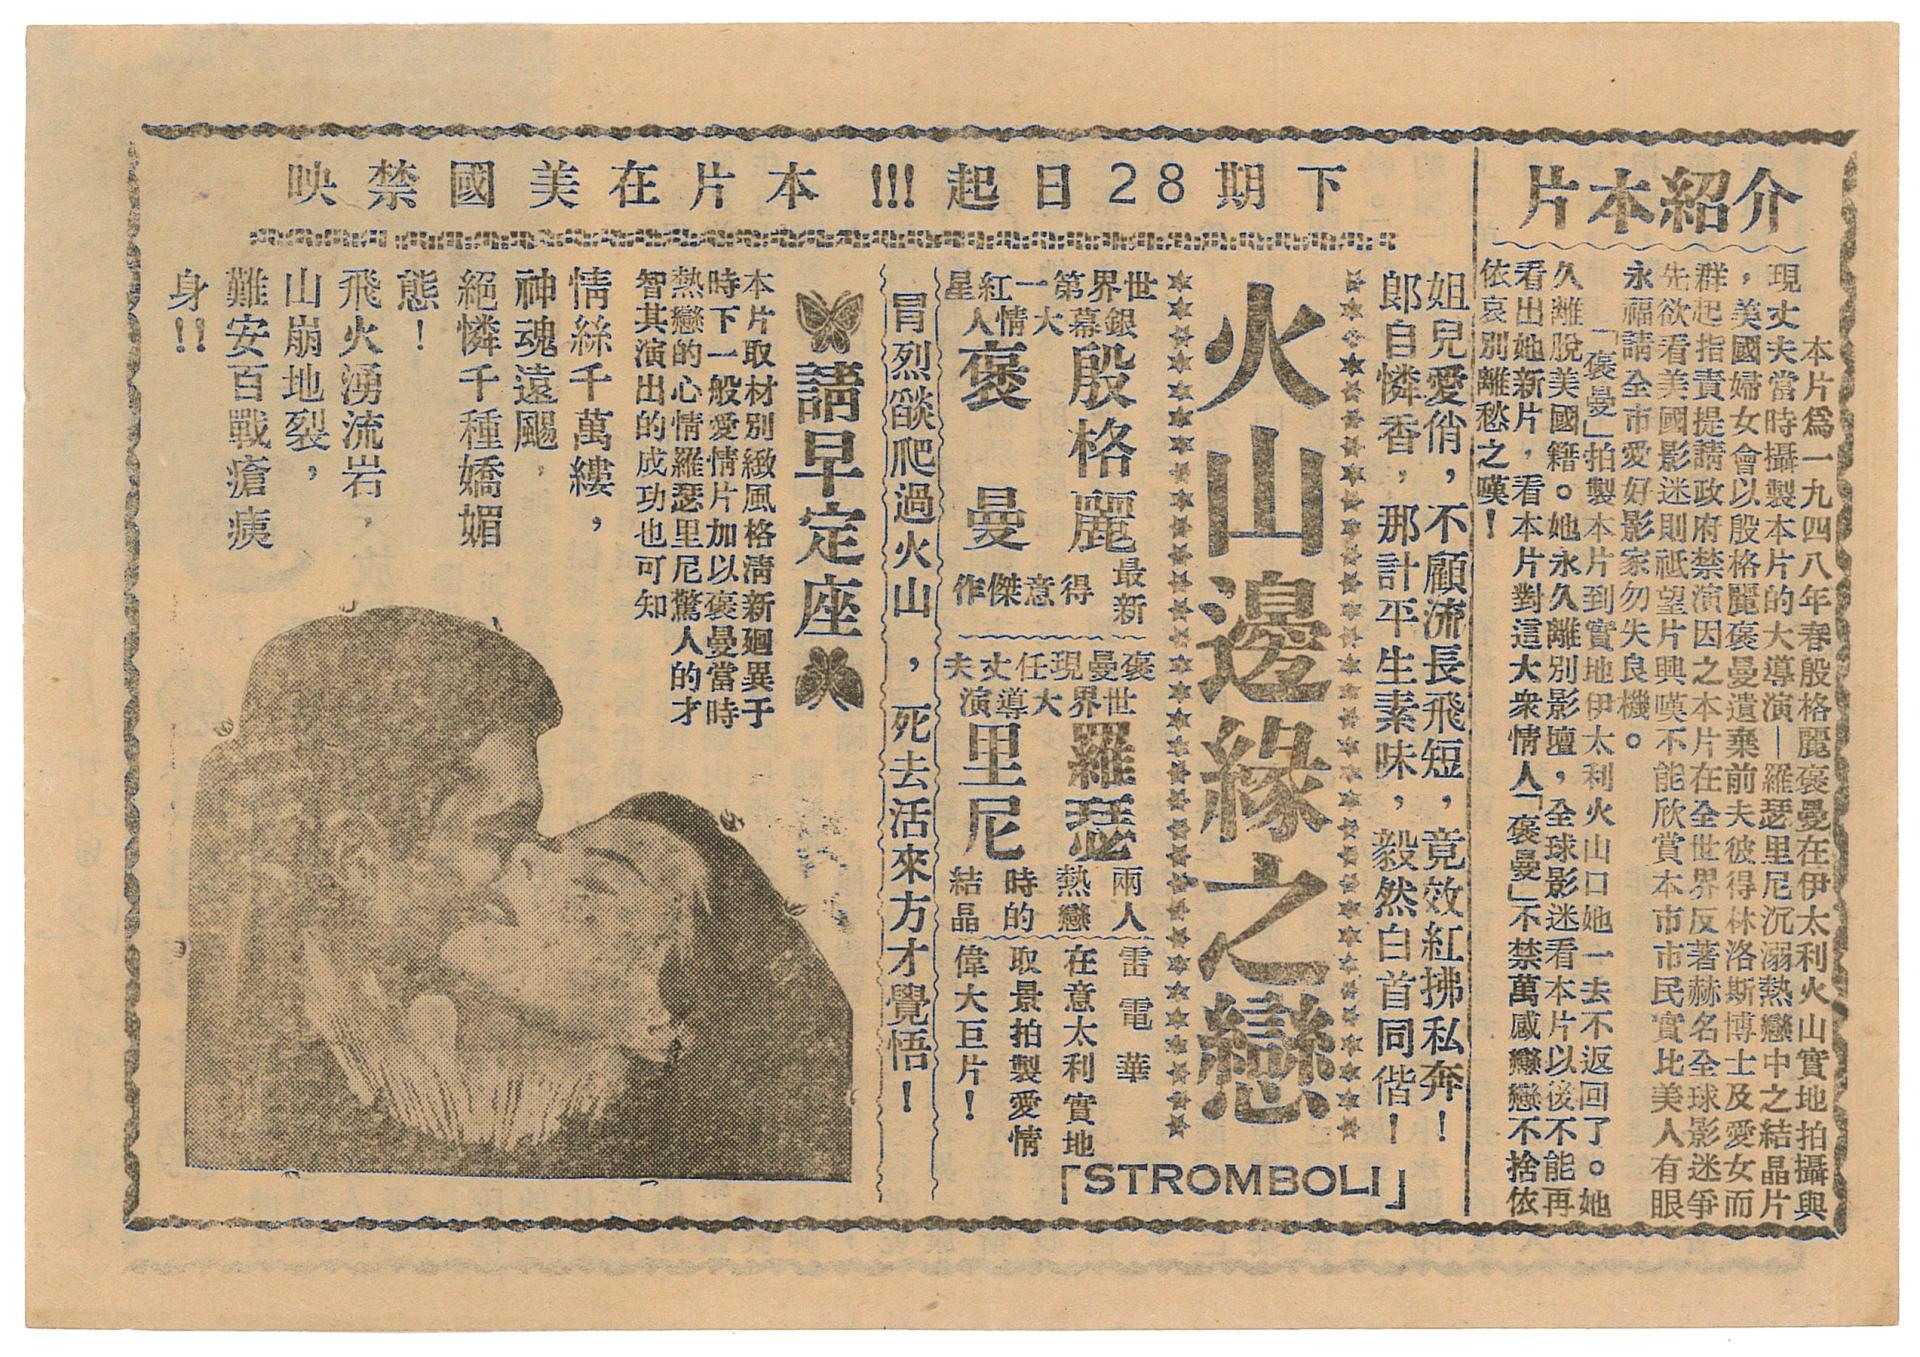 下期28日起!!!本片在美國禁映
介紹本片
本片爲一九四八年春殷格麗褒曼在伊太利火山實地拍攝與
現丈夫當時攝製本片的大導演—羅瑟里尼沉溺熱戀中之結晶片
，美國婦女會以殷格麗褒曼遺棄前夫彼得林洛斯博士及愛女而
群起指責提請政府禁演因之本片在全世界反著赫名全球影迷爭
先欲看美國影迷則祇望片興嘆不能欣賞本市市民實比美人有眼
永福請全市愛好影家勿失良機。
「褒曼」拍製本片到實地伊太利火山口她一去不返回了。她
久離脫美國籍。她永久離別影壇，全球影迷看本片以後不能再
看出她新片，看本片對這大衆情人「褒曼」不禁萬感戀戀不捨依
依哀別離愁之嘆！
姐兒愛俏，不顧流長飛短，竟效紅拂私奔！
郎自憐香，那計平生素味，毅然白首同偕！
火山邊緣之戀
「STROMBOLI」
世界第一紅星
銀幕大情人
殷格麗
褒曼
最新
得意傑作
褒曼現任丈夫
世界大導演
羅瑟
里尼
兩人
熱戀
時的
結晶
雷電華
在意太利實地
取景拍製愛情
偉大巨片！
冒烈燄爬過火山，死去活來方才覺悟！
請早定座
本片取材別緻風格淸新廻異于
時下一般愛情片加以褒曼當時
熱戀的心情羅瑟里尼驚人的才
智其演出的成功也可知
情絲千萬縷，
神魂遠颺，
絕憐千種嬌媚
態！
飛火湧流岩，
山崩地裂，
難安百戰瘡痍
身!!